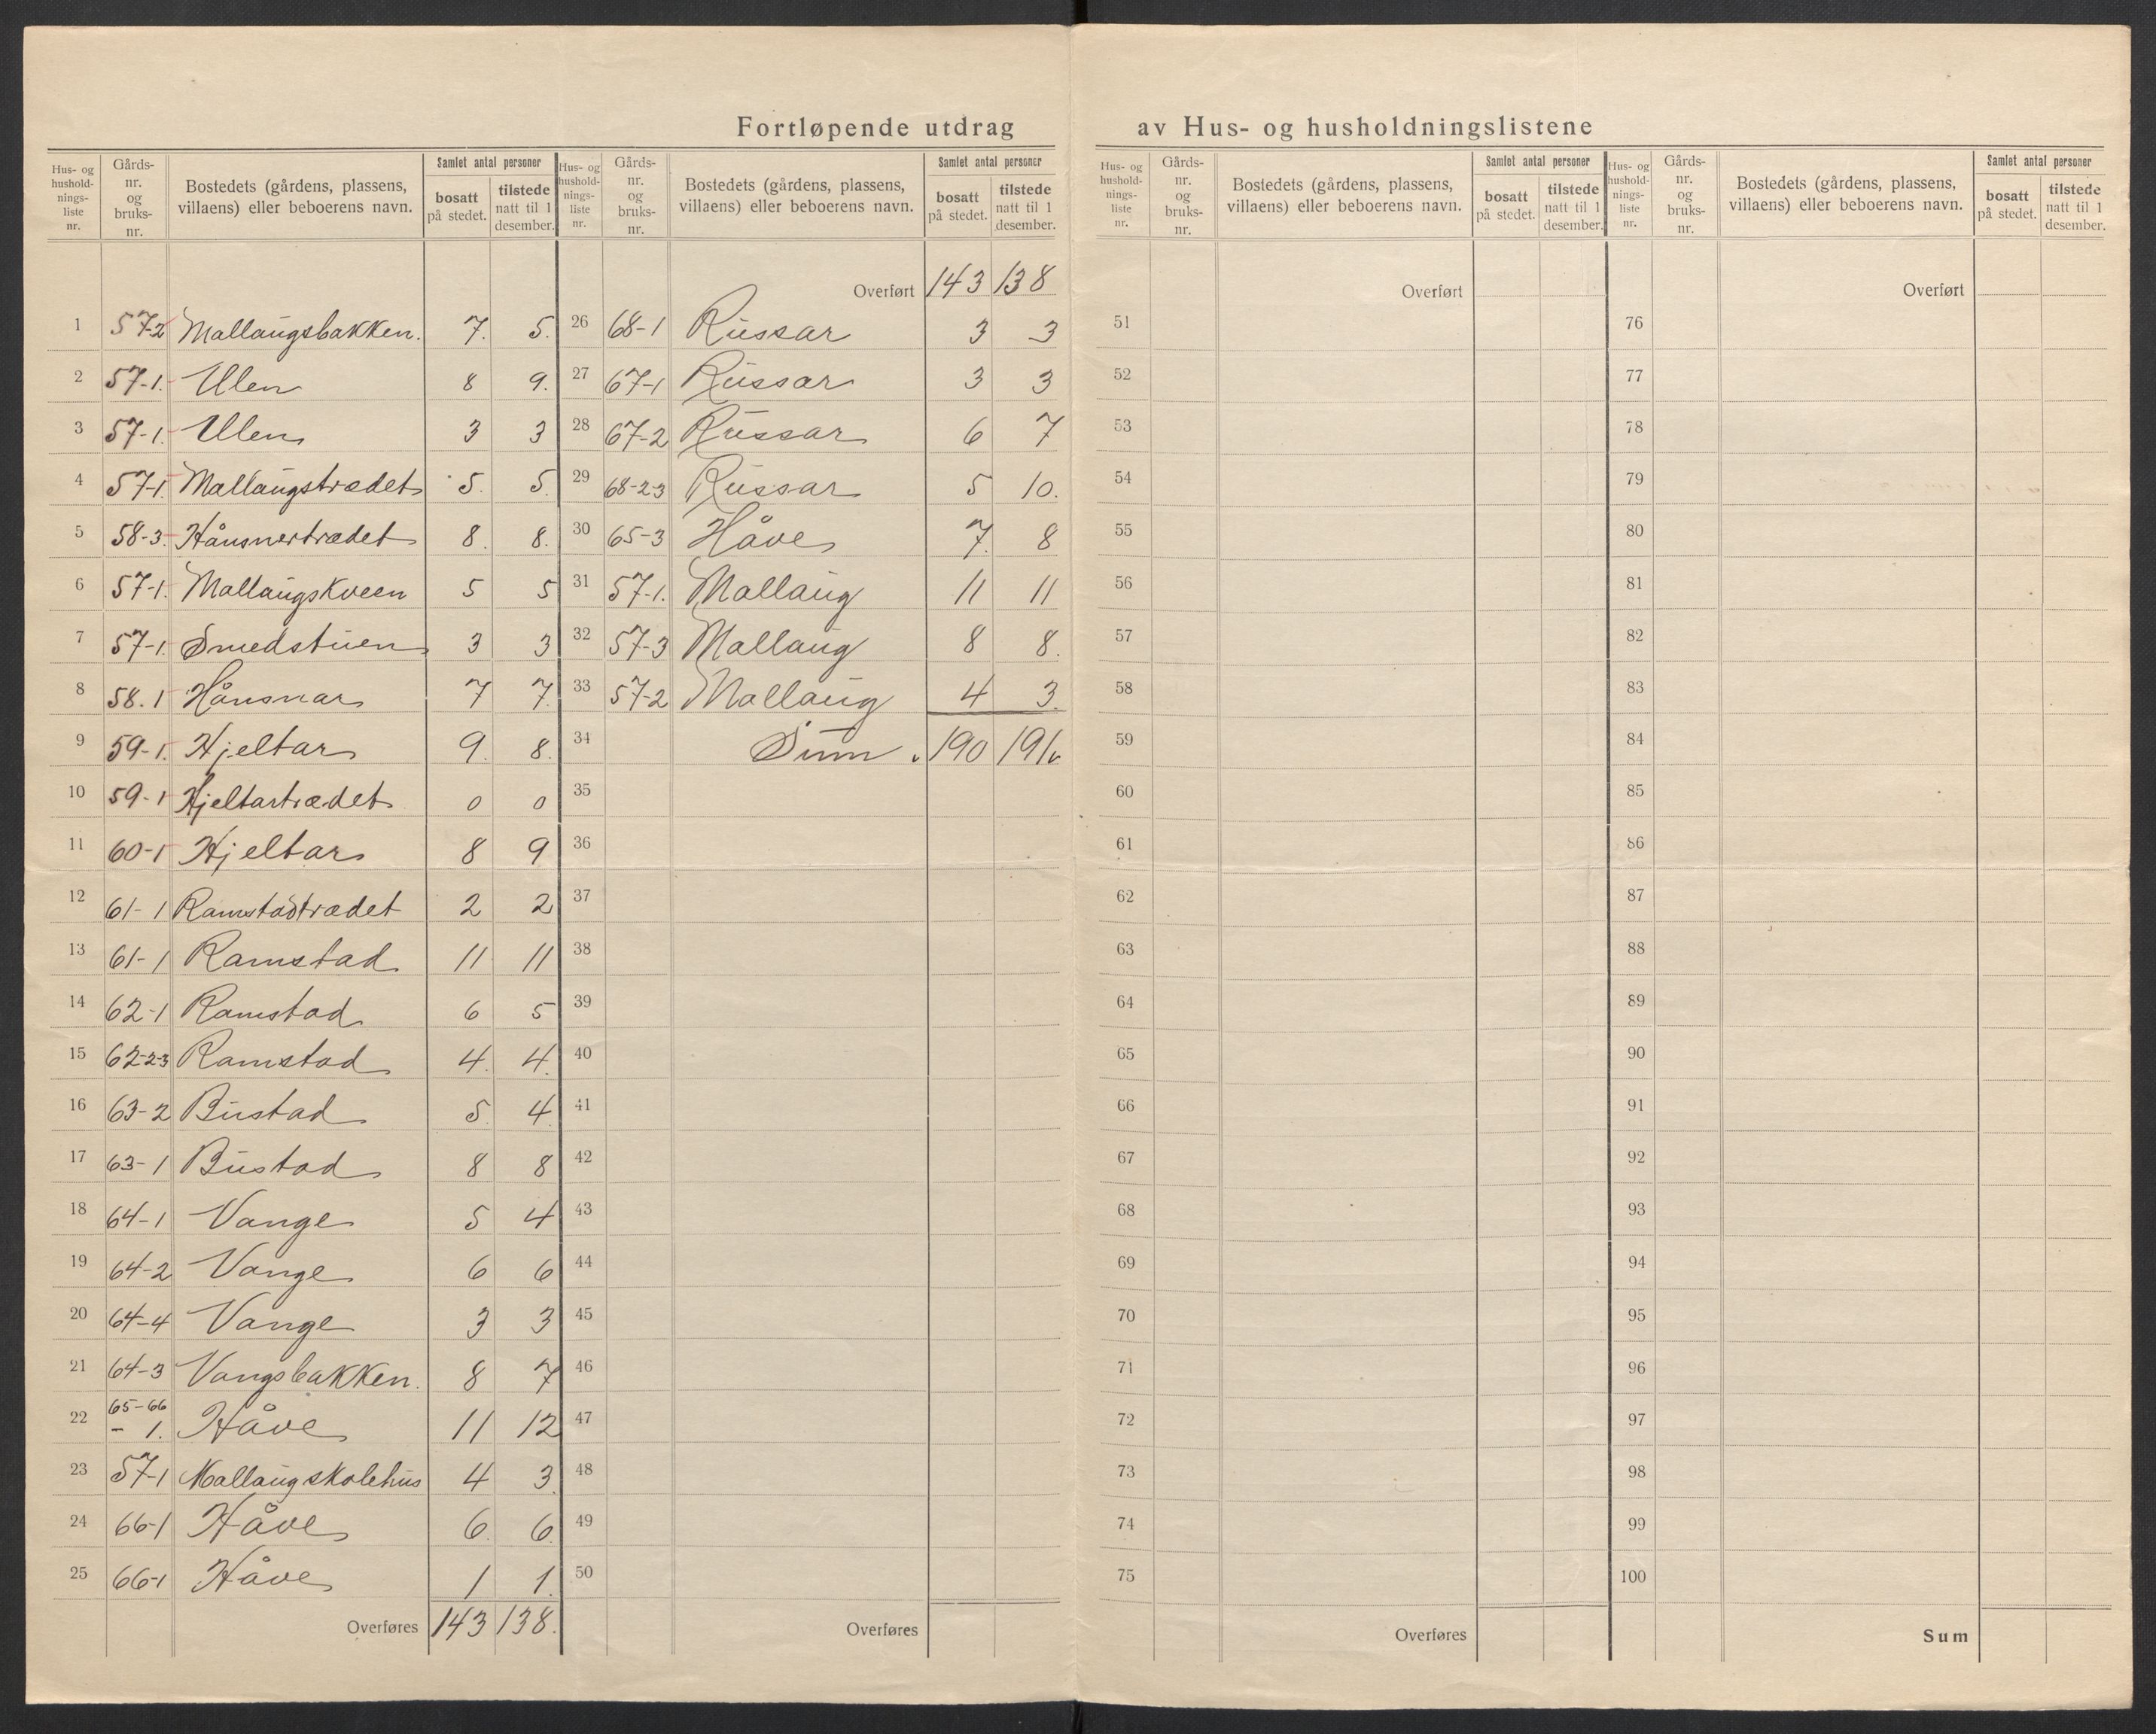 Fortløpende utdrag av Hus- og husholdningslistene
Hus- og hushold-nings-liste nr. | Gårds-nr. og bruks-nr. | Bostedets (gårdens, plassens, villaens) eller beboerens navn. | Samlet antal personer | bosatt på stedet. | tilstede natt til 1 desember.
1 57-2 Mallaugsbakken. 7. 5.
2 57-1. Ulen 8 9.
3 57-1. Ulen 3 3
4 57-1. Mallaugstrædet 5. 5.
5 58-3. Hånsnertrædet 8. 8.
6 57-1. Mallaugskveen 5 5
7 57-1. Smedstuen 3 3
8 58.1 Hånsnar 7 7.
9 59-1. Hjeltar 9. 8.
10 59-1 Hjeltartrædet 0 0
11 60-1 Hjeltar 8 9
12 61-1 Ramstadtrædet 2 2
13 61-1 Ramstad 11 11
14 62-1 Ramstad 6 5
15 62-2-3 Ramstad 4. 4.
16 63-2 Bustad 5 4
17 63-1 Bustad 8 8
18 64-1 Vange 5 4
19 64-2 Vange 6 6
20 64-4 Vange 3 3
21 64-3 Vangsbakken. 8 7
22 65-66 - 1. Håve 11 12
23 57-1 Mallaug skolehus 4 3.
24 66-1 Håve 6. 6.
25 66-1 Håve 1 1.
Overføres 143 138.
Hus- og hushold-nings-liste nr. | Gårds-nr. og bruks-nr. | Bostedets (gårdens, plassens, villaens) eller beboerens navn. | Samlet antal personer | bosatt på stedet. | tilstede natt til 1 desember.
Overført 143 138
26 68-1 Russar 3 3
27 67-1 Russar 3 3
28 67-2 Russar 6 7
29 68-2-3 Russar 5 10.
30 65-3 Håve 7. 8
31 57-1. Mallaug 11 11
32 57-3 Mallaug 8 8.
33 57-2 Mallaug 4 3.
34 Sum. 190 191
35
36
37
38
39
40
41
42
43
44
45
46
47
48
49
50
Overføres
Hus- og hushold-nings-liste nr. | Gårds-nr. og bruks-nr. | Bostedets (gårdens, plassens, villaens) eller beboerens navn. | Samlet antal personer | bosatt på stedet. | tilstede natt til 1 desember.
Overført
51
52
53
54
55
56
57
58
59
60
61
62
63
64
65
66
67
68
69
70
71
72
73
74
75
Overføres
Hus- og hushold-nings-liste nr. | Gårds-nr. og bruks-nr. | Bostedets (gårdens, plassens, villaens) eller beboerens navn. | Samlet antal personer | bosatt på stedet. | tilstede natt til 1 desember.
Overført
76
77
78
79
80
81
82
83
84
85
86
87
88
89
90
91
92
93
94
95
96
97
98
99
100
Sum